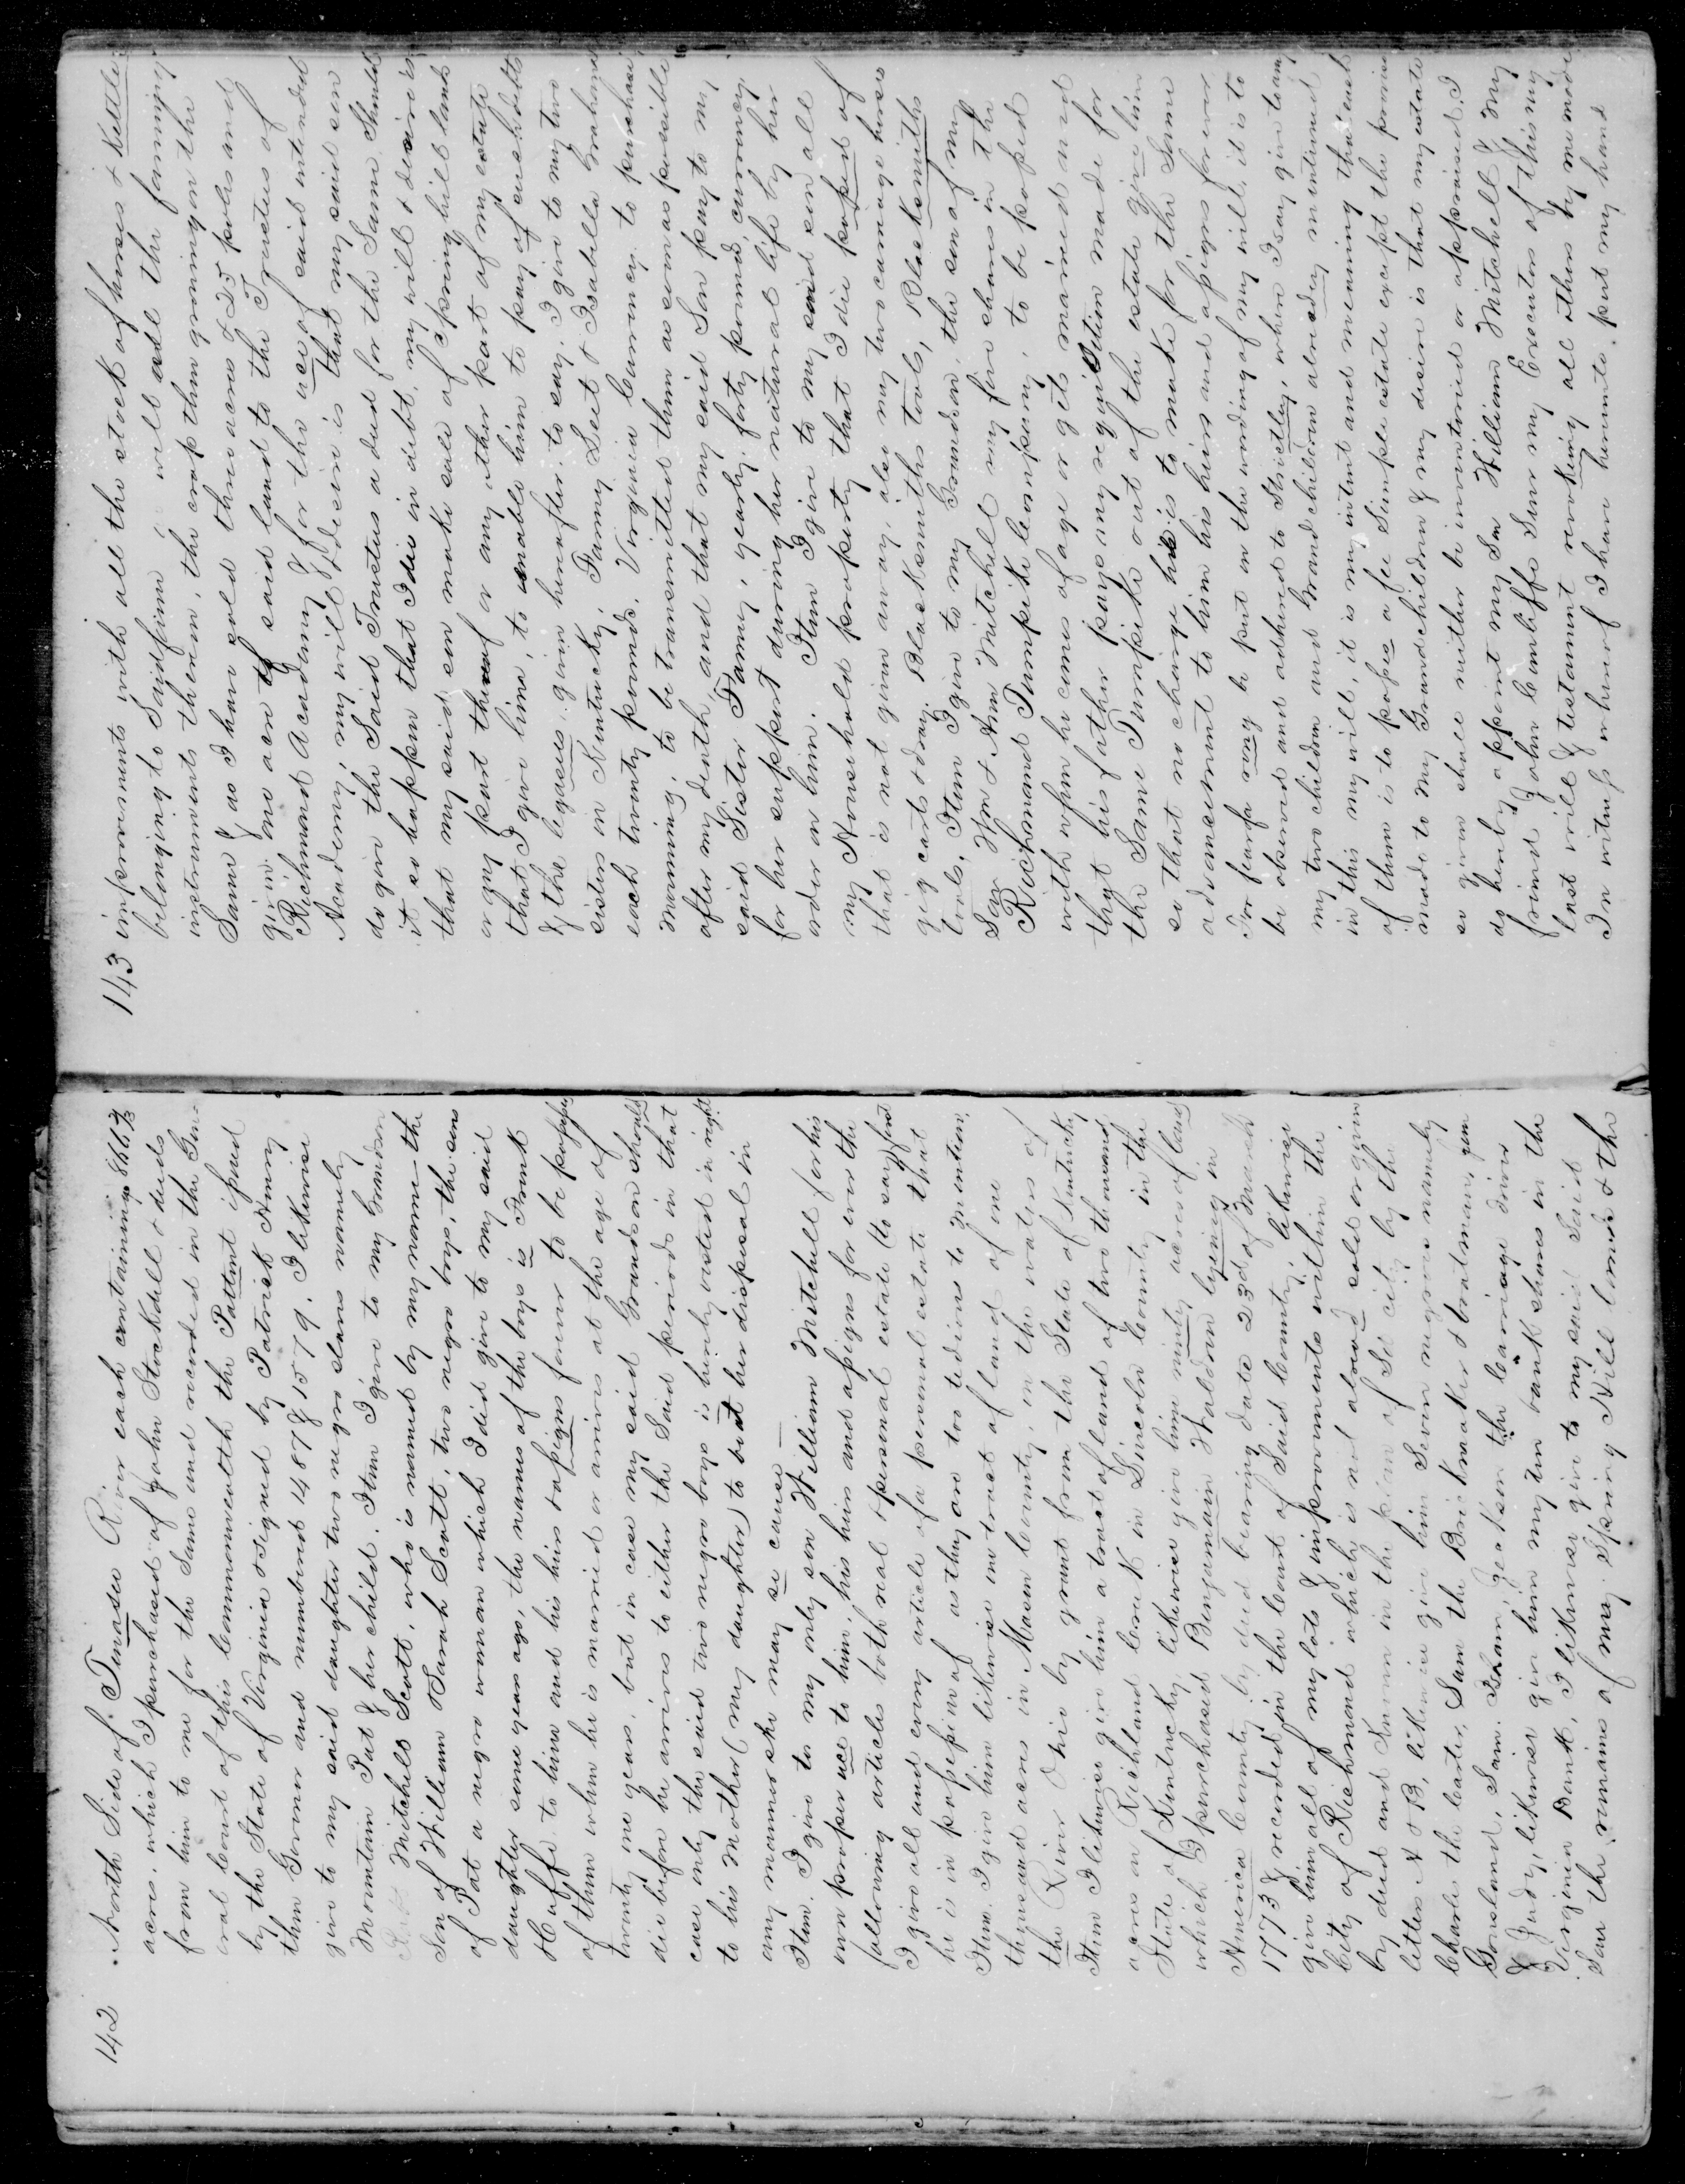 142
North Side of Tenasee River each containing 866 2/3
acres. which I purchased of John Stockdell & deeds
from him to me for the Same and recorded in the Gen-
eral Court of this Commonwealth the Pattent issued
by the State of Virginia & Signed by Patrick Henry
then Governor and numbered 1487 & 1579. I likewise
give to my said daughter two negro slaves namely
Mountain Pat & her child. Item I give to my Grandson
Mitchell Scott, who is named by my name the
Son of William & Sarah Scott, two negro boys, the sons
of Pat a negro woman which I did give to my said
daughter some years ago, the names of the boys is Frank
to him and his heirs & assigns forever to be possess
of them when he is married or arrives at the age of
twenty one years, but in case my said Grandson should
die before he arrives to either the Said periods in that
case only the said two negro boys is hereby vested in right
to his Mother (my daughter) to be at her disposal in
any manner she may se cause —
Item. I give to my only son William Mitchell for his
own proper use to him, his heirs and assigns for ever the
following articles both real & personal estate (to say) first
I give all and every article of a personal estate that
he is in possession of as they are too tedious to mention,
Item. I give him likewise one tract of land of one
thousand acres in Mason County, in the waters of
the River Ohio by grant from the State of Kentucky
Item I likewise give him a tract of land of two thousand
acres on Richland Creek in Lincoln County in the
State of Kentucky, likewise give him ninety acres of land
which I purchased Benjamain Waldron lyeing in
Henerico County by deed bearing date 23d of March
1773 & recorded in the Court of Said County, likewise
give him all of my lots & improvements within the
City of Richmond which is not alread sold or given
by deed and Known in the plan of Sd city by the
letters A & B, likewise give him Seven negroes namely
Charles the Carter, Sam the Brick maker & boatman, gim
Goreland, Sam. Isam, Jackson the Carriage driver
& Judy, likewise give him my ten bank shares in the
Virginia Bank, I likewise give to my said Said
Son the remains of my Spring Hill land & the
143
improvements with all the stock of horses & Kettle
belonging to Said farm will all the farming
instruments thereon, the crop then growing on the
Same & as I have sold three acres & 25 poles and
given one acre of said land to the Trustees of
Richmond Academy & for the use of said intended
Academy, my will & desire is that my said son
do give the Said Trustees a deed for the Same Should
it so happen that I die in debt, my will & desire is
that my said son make sale of Spring hill land
or any part thereof or any other part of my estate
that I give him, to enable him to pay of such debts
& the legases given hereafter, to say. I give to my two
sisters in Kentucky, Fanny Leet & Isabella Graham
each twenty pounds, Virginia Currency, to purchase
mourning, to be transmitted them as soon as possible
after my death, and that my said Son pay to my
said Sister Fanny, yearly, forty pound, currency
for her support during her natural life by her
order on him. Item I give to my said son all
my House hold property that I die possed of
that is not given away, also my two carriage horses
gig carts & dray. Blacksmiths tools, Black Smiths
tools, Item I give to my Grandson, the son of my
Son Wm & Ann Mitchell my five shares in the
Richmond Turnpike Company, to be possed
with when he comes of age or gets married and
that his father pays any requisition made for
the Same Turnpike out of the estate give him
so that no charge he is to make for the Same
advancement to him his heirs and assigns forever
For fear a rong be put on the wording of my will, it is to
be observed and adhered to Strictley, when I say give to any
my two children and Grandchildren already mentioned
in this my will, it is my intent and meaning that each
of them is to posses a fee Simple estate except the promise
made to my Grandchildren & my desire is that my estate
so given shall neither be inventoried or appraised. I
do hereby appoint my Son William Mitchell & my
friend John Cunliffe Senr my Executors of this my
last will & testament revokeing all others by me made
In witness whereof I have hereunto put my hand